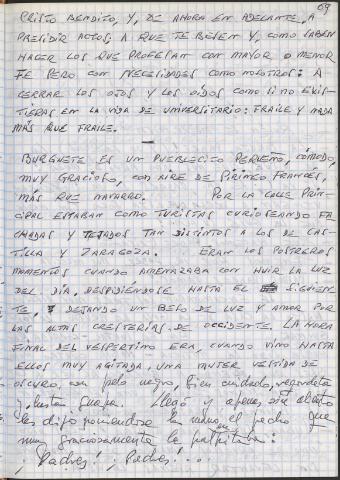 69
CRISTO BENDITO, Y, DE AHORA EN ADELANTE, A
PRESIDIR ACTOS, A QUE TE BESEN Y, COMO SABEN
HACER LOS QUE PROFESAN CON MAYOR O MENOR
FE PERO CON NECESIDADES COMO NOSOTROS: A
CERRAR LOS OJOS Y LOS OIDOS COMO SI NO EXIS-
TIERAS EN LA VIDA DE UNIVERSITARIO: FRAILE Y NADA
MÁS QUE FRAILE.
—
BURGUETE ES UN PUEBLECITO PEQUEÑO, CÓMODO,
MUY GRACIOSO, CON AIRE DE PIRINEO FRANCÉS,
MÁS QUE NAVARRO. POR LA CALLE PRIN-
CIPAL ESTABAN COMO TURISTAS CURIOSEANDO FA-
CHADAS Y TEJADOS TAN DISTINTOS A LOS DE CAS-
TILLA Y ZARAGOZA. ERAN LOS POSTREROS
MOMENTOS CUANDO AMENAZABA CON HUIR LA LUZ
DEL DÍA, DESPIDIÉNDOSE HASTA EL SIGUIEN-
TE, DEJANDO UN BESO DE LUZ Y AMOR POR
LAS ALTAS CRESTERÍAS DE OCCIDENTE. LA HORA
FINAL DEL VESPERTINO ERA, CUANDO VINO HASTA
ELLOS MUY AGITADA, UNA MUJER VESTIDA DE
OSCURO, con pelo negro, bien cuidado, regordeta
y hasta guapa. Llegó y apenas sin aliento
les dijo poniéndose la mano en el pecho que
muy graciosamente le palpitaba:
¡Padres! ¡Padres!...